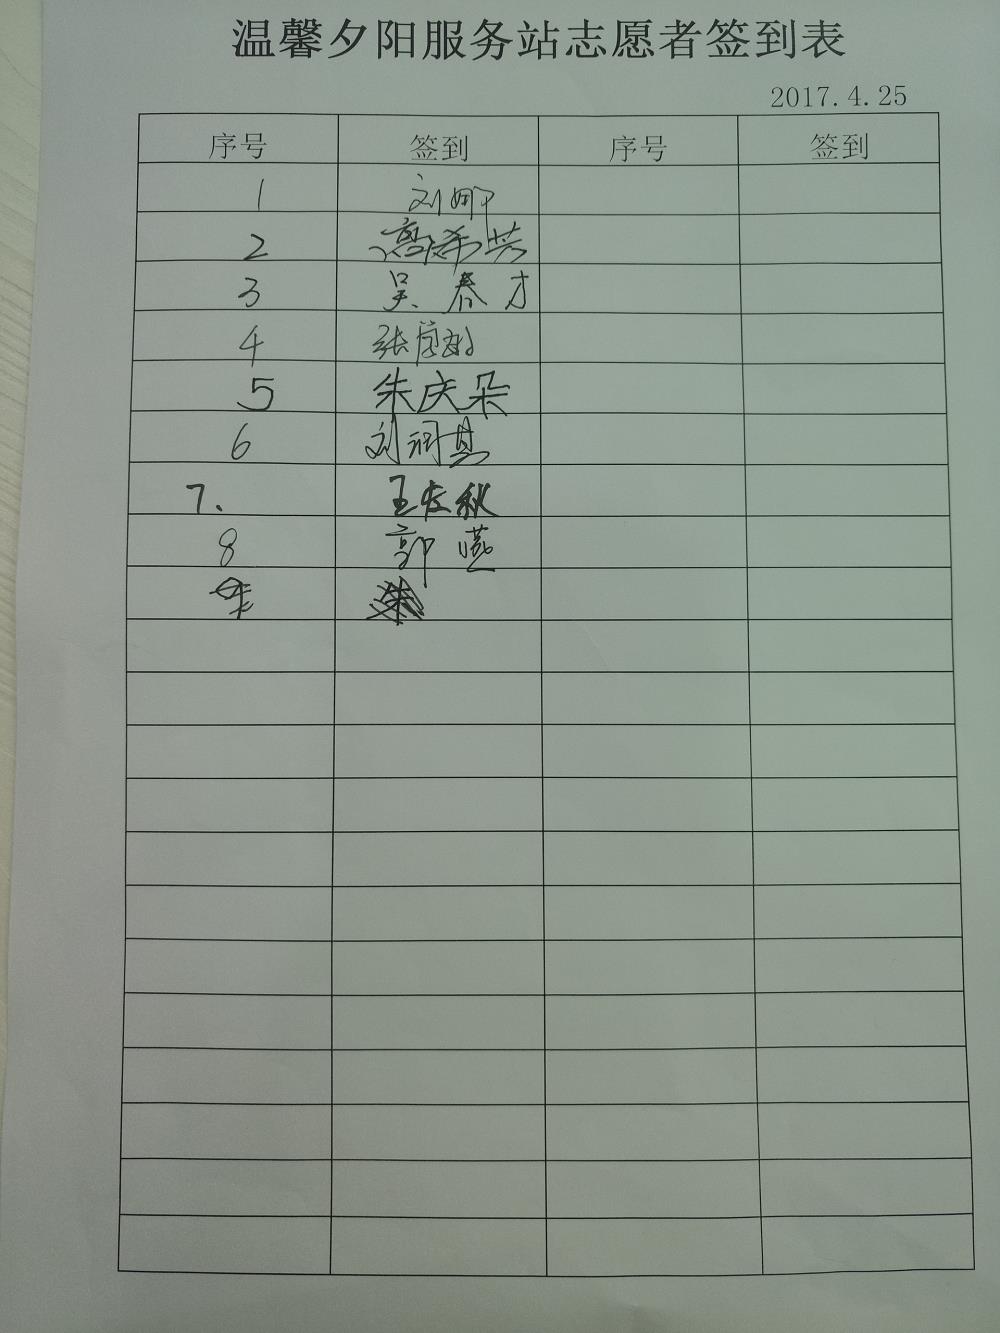 温馨夕阳服务站志愿者签到表
2017.4.25
序号 签到 序号 签到
1 刘娜
2 希芳
3 吴春才
4 张
5 朱庆朵
6 刘润其
7. 王友秋
8 郭